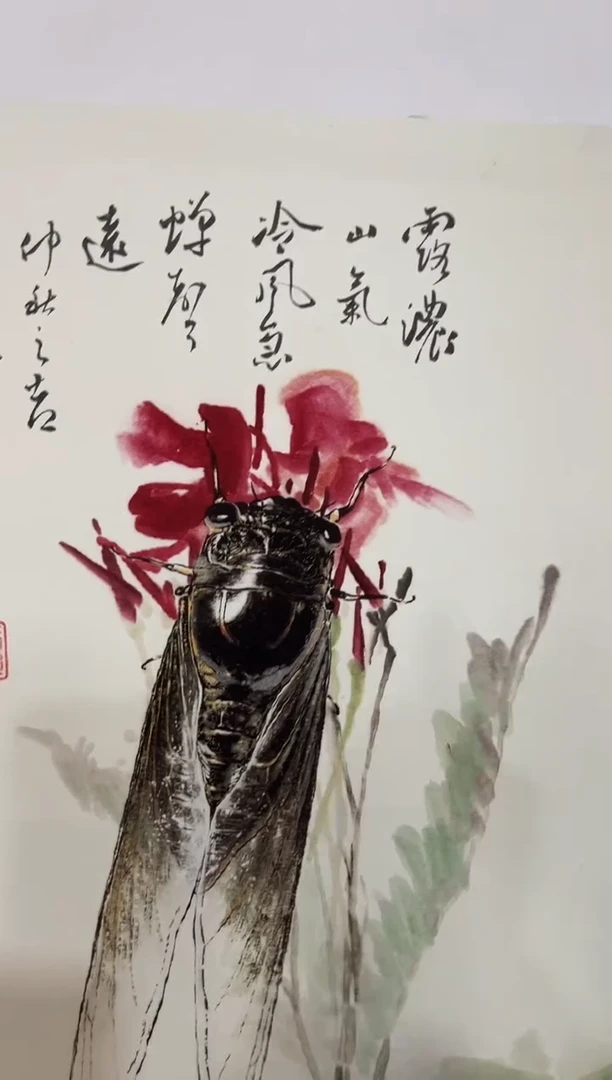 露濃
山氣
冷風急
蟬聲
遠
仲秋之吉